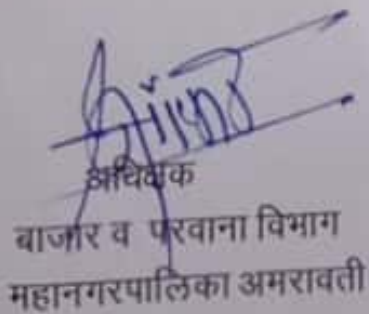 अधिक्षक
बाजार व परवाना विभाग
महानगरपालिका अमरावती